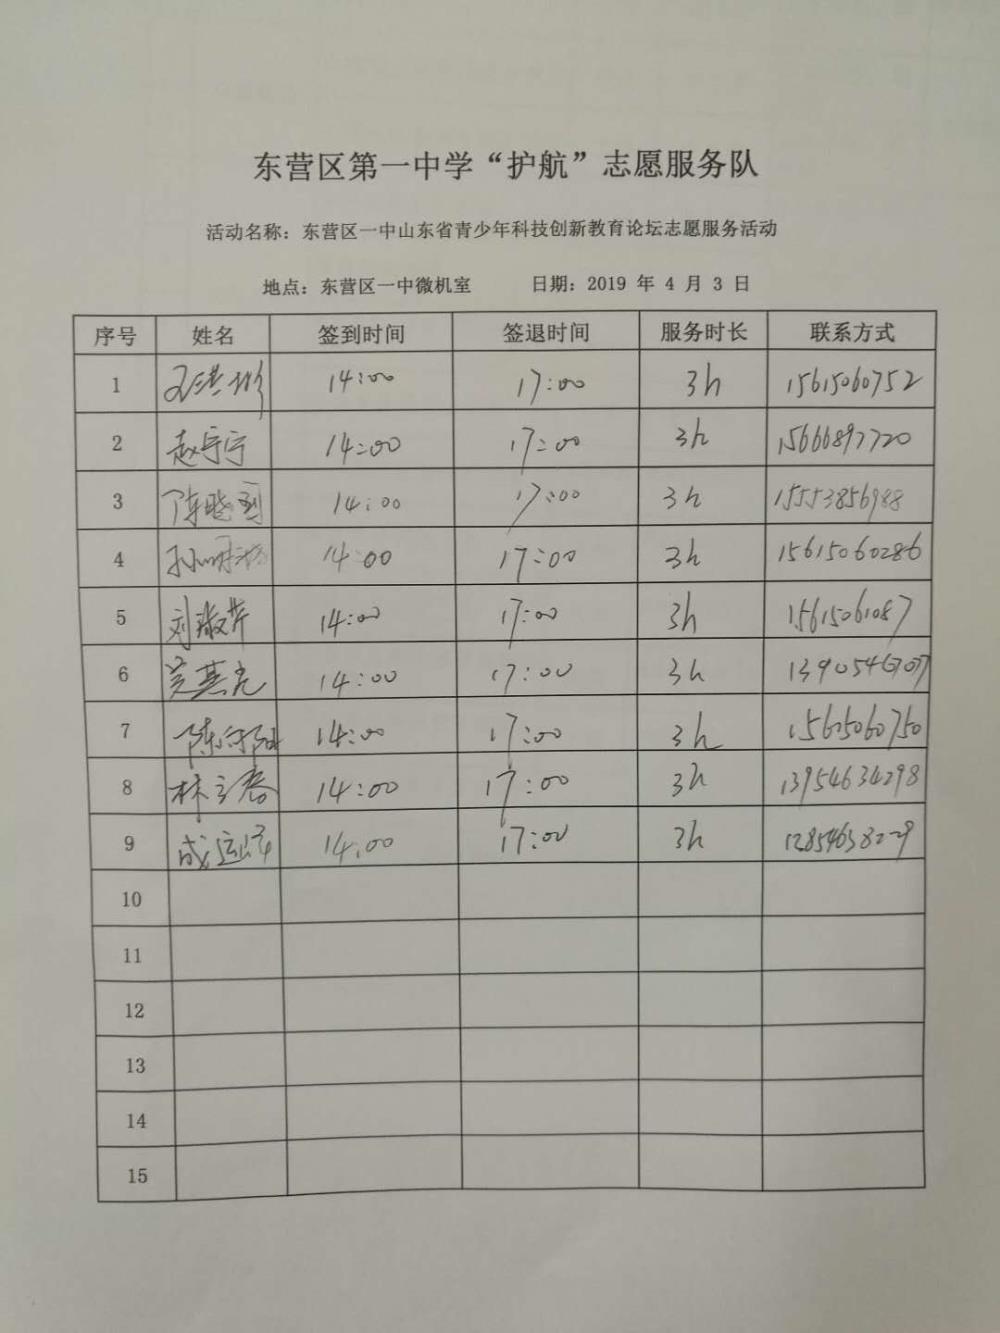 东营区第一中学“护航”志愿服务队
活动名称：东营区一中山东省青少年科技创新教育论坛志愿服务活动
地点：东营区一中微机室 日期：2019 年 4 月 3 日
序号 姓名 签到时间 签退时间 服务时长 联系方式
1 14:00 17:00 3h 15615060752
2 赵宁宁 14:00 17:00 3h 15666897720
3 陈晓丽 14:00 17:00 3h 15553856988
4 14:00 17:00 3h 15615060286
5 刘淑芹 14:00 17:00 3h 15615061087
6 14:00 17:00 3h
7 14:00 17:00 3h 15615060750
8 林立春 14:00 17:00 3h 13954634298
9 14:00 17:00 3h
10
11
12
13
14
15